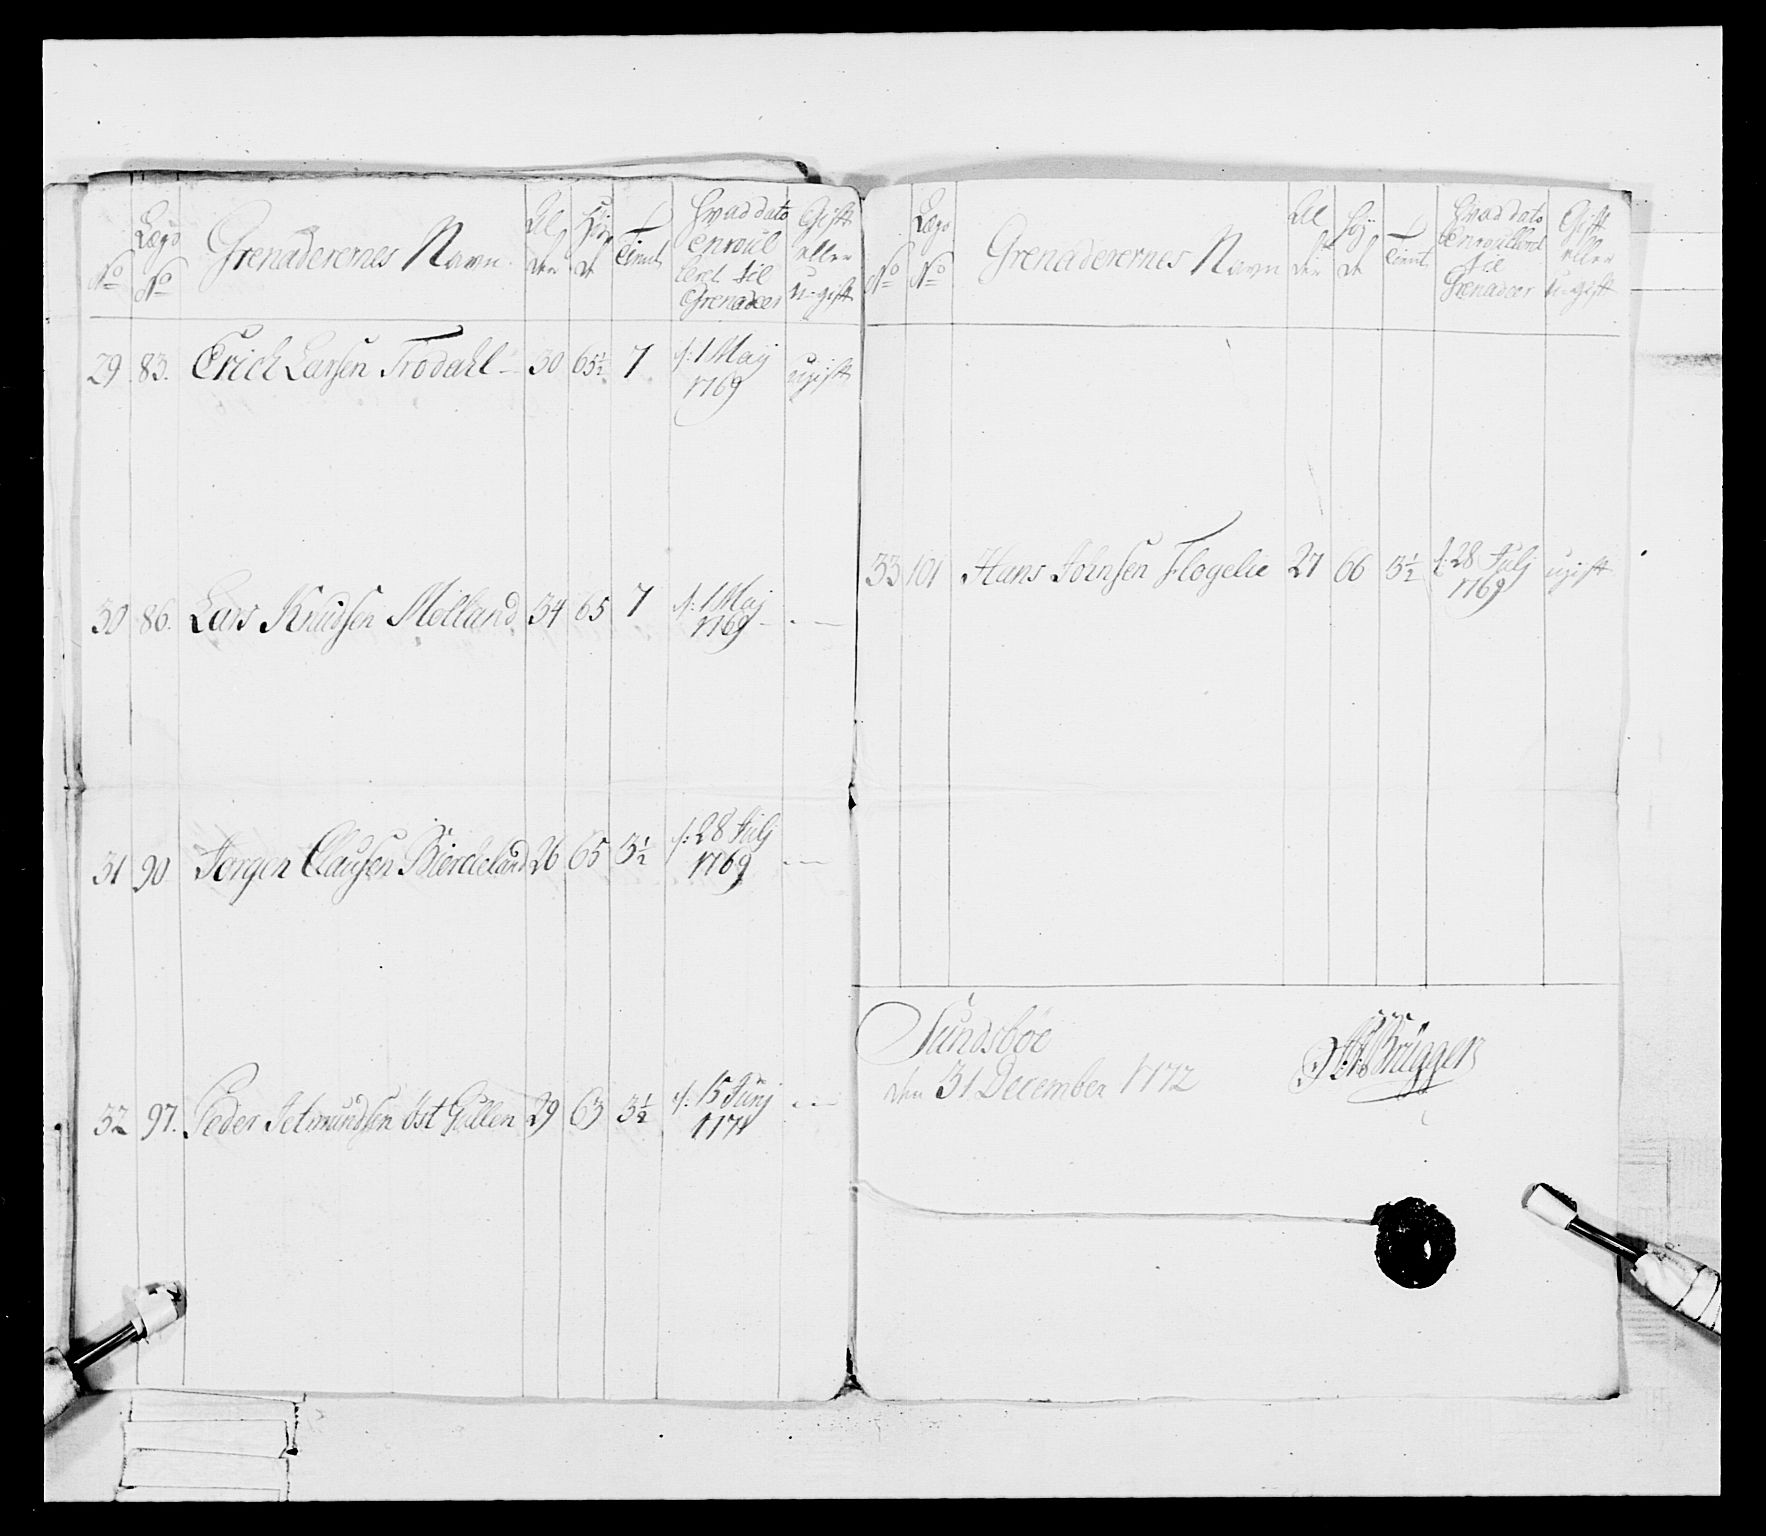 No
Lægs No
Grenaderernes Navn
Al der
Høj de
Tient
Hvad dato enroulleret til Grenadeer
Gift eller u-gift
29. 83. Erich Larsen Frodahl - 30 65½ 7 d: 1 Maij 1769 ugift
30 86. Lars Knudsen Melland 34 65 7 d: 1 Maj 1769 - . -
31 90 Jørgen Clausen Bierkeland 26 65 3½ d: 28 Julj 1769 - . -
32 97. Peder Jetmundsen Øst Hullen 29 63 3½ d: 15 Junj 177
No
Lægs No
Grenaderernes Navn
Al der
Høj de
Tient
Hvad dato Enroulleret til Grenadeer
Gift eller U-gift
33 101 Hans Joensen Flogelie 27 66 3½ d: 28 Julj 1769 ugift
Sundsbøe
den 31 December 1772
Brüggers